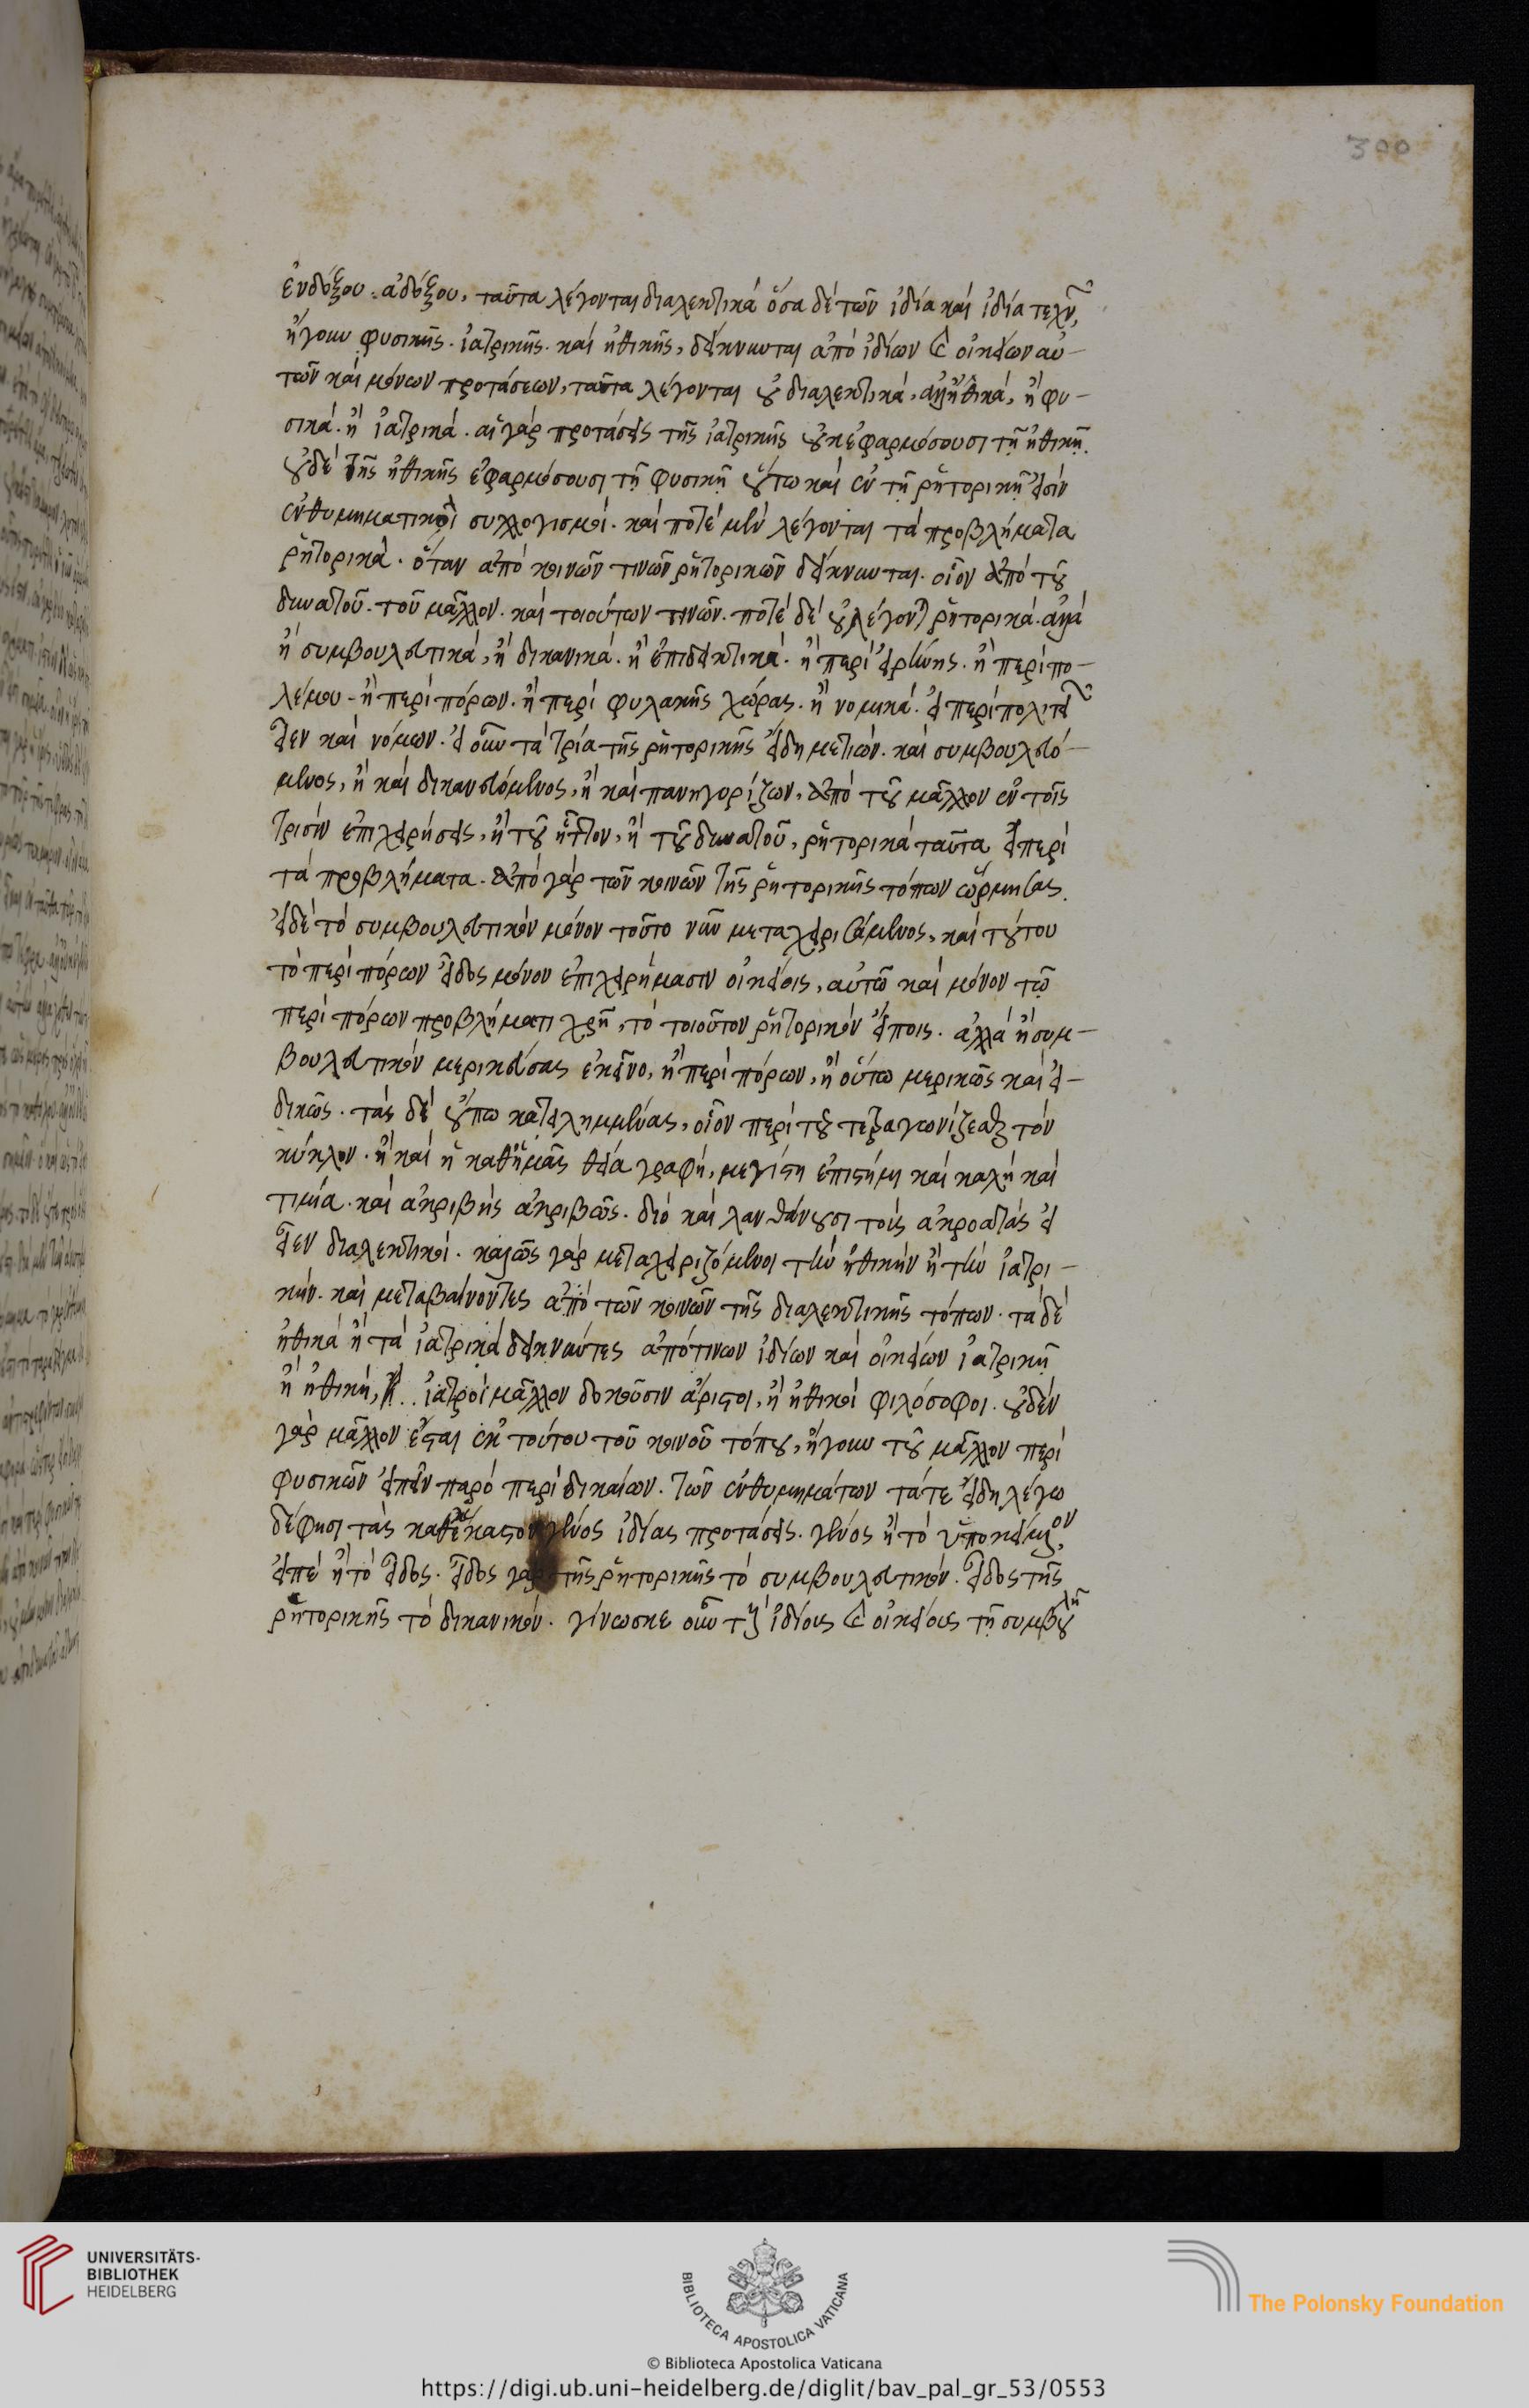 300
ἐνδόξου. ἀδόξου, ταῦτα λέγονται διαλεκτικά ὅσα δὲ τῶν ἰδία καὶ ἰδία τεχν,
ἤγουν φυσικῆς. ἰατρικῆς. καὶ ἠθικῆς, δείκνυνται ἀπὸ ἰδίων καὶ οἰκείων αὐ-
τῶν καὶ μόνων προτάσεων, ταῦτα λέγονται οὐ διαλεκτικά, ἀλλ' ἠθικά, ἢ φυ-
σικά. ἢ ἰατρικά. αἱ γὰρ προτάσεις τῆς ἰατρικῆς οὐκ ἐφαρμόσουσι τῇ ἠθικῇ.
οὐδὲ τῆς ἠθικῆς ἐφαρμόσουσι τῇ φυσικῇ οὕτω καὶ ἐν τῇ ῥητορικῇ εἰσὶν
ἐνθυμηματικοὶ συλλογισμοί. καὶ ποτὲ μὲν λέγονται τὰ προβλήματα
ῥητορικά. ὅταν ἀπὸ κοινῶν τινῶν ῥητορικῶν δείκνυνται. οἷον ἀπὸ τοῦ
δυνατοῦ. τοῦ μᾶλλον. καὶ τοιούτων τινῶν. ποτὲ δὲ οὐ λέγονται ῥητορικά. ἀλλὰ
ἢ συμβουλευτικά, ἢ δικανικά. ἢ ἐπιδεικτικά. ἢ περὶ εἰρήνης. ἢ περὶ πο-
λέμου. ἢ περὶ πόρων. ἢ περὶ φυλακῆς χώρας. ἢ νομικά. εἰ περὶ πολιτει
εἶεν καὶ νόμων. εἰ οὖν τὰ τρία τῆς ῥητορικῆς εἴδη μετιών. καὶ συμβουλευό-
μενος, ἢ καὶ δικανευόμενος, ἢ καὶ πανηγυρίζων, ἀπὸ τοῦ μᾶλλον ἐν τοῖς
τρισὶν ἐπιχειρήσεις, ἢ τοῦ ἧττον, ἢ τοῦ δυνατοῦ, ῥητορικὰ ταῦτα εἴπερι
τὰ προβλήματα. ἀπὸ γὰρ τῶν κοινῶν τῆς ῥητορικῆς τόπων ὥρμησας.
εἰ δὲ τὸ συμβουλευτικὸν μόνον τοῦτο νῦν μεταχειρισάμενος, καὶ τούτου
τὸ περὶ πόρων εἶδος μόνον ἐπιχειρήμασιν οἰκείοις, αὐτῷ καὶ μόνον τῷ
περὶ πόρων προβλήματι χρῇ, τὸ τοιοῦτον ῥητορικὸν εἴποις. ἀλλὰ ἢ συμ-
βουλευτικὸν μερικεύσας ἐκεῖνο, ἢ περὶ πόρων, ἢ οὕτω μερικῶς καὶ εἰ-
δικῶς. τὰς δὲ οὔπω κατειλημμένας, οἷον περὶ τοῦ τετραγωνίζεσθαι τὸν
κύκλον. ἢ καὶ ἡ καθ' ἡμᾶς θεία γραφή, μεγίστη ἐπιστήμη καὶ καλὴ καὶ
τιμία. καὶ ἀκριβὴς ἀκριβῶς. διὸ καὶ λανθάνουσι τοὺς ἀκροατὰς εἰ
εἶεν διαλεκτικοί. καλῶς γὰρ μεταχειριζόμενοι τὴν ἠθικὴν ἢ τὴν ἰατρι-
κήν. καὶ μεταβαίνοντες ἀπὸ τῶν κοινῶν τῆς διαλεκτικῆς τόπων. τὰ δὲ
ἠθικὰ ἢ τὰ ἰατρικὰ δεικνύντες ἀπό τινων ἰδίων καὶ οἰκείων ἰατρικῇ
ἢ ἠθικῇ, ἰατροὶ μᾶλλον δοκοῦσιν ἄριστοι, ἢ ἠθικοὶ φιλόσοφοι. οὐδὲν
γὰρ μᾶλλον ἔσται ἐκ τούτου τοῦ κοινοῦ τόπου, ἤγουν τοῦ μᾶλλον περὶ
φυσικῶν εἰπεῖν παρὸ περὶ δικαίων. τῶν ἐνθυμημάτων τά τε εἴδη λέγω
δέ φησι τὰς καθ' ἕκαστον γένος ἰδίας προτάσεις. γένος ἢ τὸ ὑποκείμενον
εἰπὲ ἢ τὸ εἶδος. εἶδος γὰρ τῆς ῥητορικῆς τὸ συμβουλευτικόν. εἶδος τῆς
ῥητορικῆς τὸ δικανικόν. γίνωσκε οὖν τοῖς ἰδίοις καὶ οἰκείοις τῇ συμβουλῇ
UNIVERSITÄTS-
BIBLIOTHEK
HEIDELBERG
BIBLIOTECA APOSTOLICA VATICANA
The Polonsky Foundation
© Biblioteca Apostolica Vaticana
https://digi.ub.uni-heidelberg.de/diglit/bav_pal_gr_53/0553